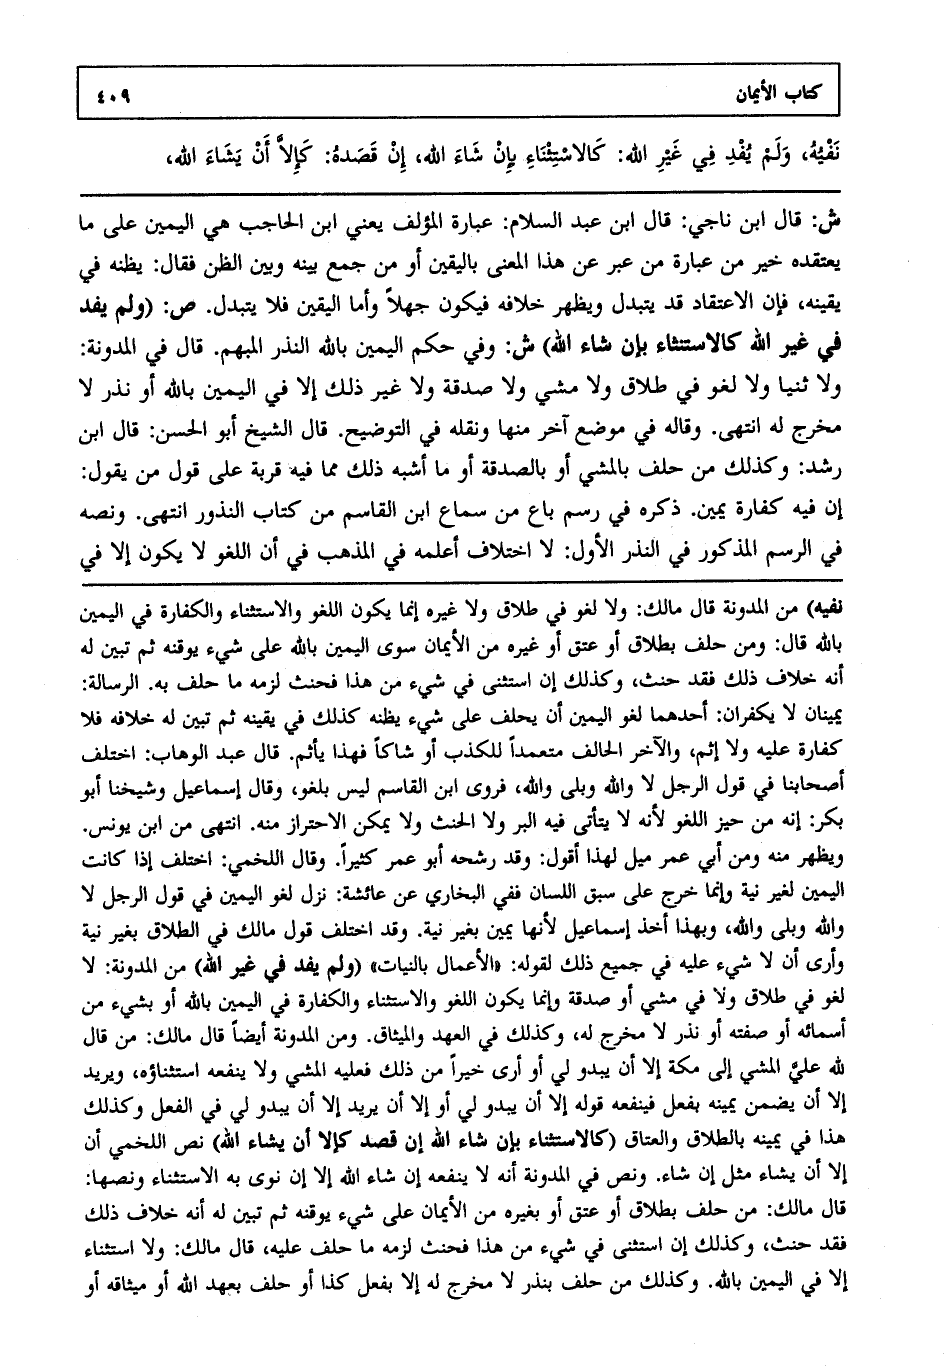 كتاب الأيمان ٤٠٩
نَفْيُهُ، وَلَمْ يُفْدِ فِي غَيْرِ الله: كَالاسْتِثْنَاءِ بِإِنْ شَاءَ الله، إِنْ قَصَدَهُ: كَإِلاَّ أَنْ يَشَاءَ الله،
ش: قال ابن ناجي: قال ابن عبد السلام: عبارة المؤلف يعني ابن الحاجب هي اليمين على ما
يعتقده خير من عبارة من عبر عن هذا المعنى باليقين أو من جمع بينه وبين الظن فقال: يظنه في
يقينه، فإن الاعتقاد قد يتبدل ويظهر خلافه فيكون جهلاً وأما اليقين فلا يتبدل. ص: (ولم يفد
في غير الله كالاستثناء بإن شاء الله) ش: وفي حكم اليمين بالله النذر المبهم. قال في المدونة:
ولا ثنيا ولا لغو في طلاق ولا مشي ولا صدقة ولا غير ذلك إلا في اليمين بالله أو نذر لا
مخرج له انتهى. وقاله في موضع آخر منها ونقله في التوضيح. قال الشيخ أبو الحسن: قال ابن
رشد: وكذلك من حلف بالمشي أو بالصدقة أو ما أشبه ذلك مما فيه قربة على قول من يقول:
إن فيه كفارة يمين. ذكره في رسم باع من سماع ابن القاسم من كتاب النذور انتهى. ونصه
في الرسم المذكور في النذر الأول: لا اختلاف أعلمه في المذهب في أن اللغو لا يكون إلا في
نفيه) من المدونة قال مالك: ولا لغو في طلاق ولا غيره إنما يكون اللغو والاستثناء والكفارة في اليمين
بالله قال: ومن حلف بطلاق أو عتق أو غيره من الأيمان سوى اليمين بالله على شيء يوقنه ثم تبين له
أنه خلاف ذلك فقد حنث، وكذلك إن استثنى في شيء من هذا فحنث لزمه ما حلف به. الرسالة:
يمينان لا يكفران: أحدهما لغو اليمين أن يحلف على شيء يظنه كذلك في يقينه ثم تبين له خلافه فلا
كفارة عليه ولا إثم، والآخر الحالف متعمداً للكذب أو شاكاً فهذا يأثم. قال عبد الوهاب: اختلف
أصحابنا في قول الرجل لا والله وبلى والله، فروى ابن القاسم ليس بلغو، وقال إسماعيل وشيخنا أبو
بكر: إنه من حيز اللغو لأنه لا يتأتى فيه البر ولا الحنث ولا يمكن الاحتراز منه. انتهى من ابن يونس.
ويظهر منه ومن أبي عمر ميل لهذا أقول: وقد رشحه أبو عمر كثيراً. وقال اللخمي: اختلف إذا كانت
اليمين لغير نية وإنما خرج على سبق اللسان ففي البخاري عن عائشة: نزل لغو اليمين في قول الرجل لا
والله وبلى والله، وبهذا أخذ إسماعيل لأنها يمين بغير نية. وقد اختلف قول مالك في الطلاق بغير نية
وأرى أن لا شيء عليه في جميع ذلك لقوله: «الأعمال بالنيات» (ولم يفد في غير الله) من المدونة: لا
لغو في طلاق ولا في مشي أو صدقة وإنما يكون اللغو والاستثناء والكفارة في اليمين بالله أو بشيء من
أسمائه أو صفته أو نذر لا مخرج له، وكذلك في العهد والميثاق. ومن المدونة أيضاً قال مالك: من قال
لله عليَّ المشي إلى مكة إلا أن يبدو لي أو أرى خيراً من ذلك فعليه المشي ولا ينفعه استثناؤه، ويريد
إلا أن يضمن يمينه بفعل فينفعه قوله إلا أن يبدو لي أو إلا أن يريد إلا أن يبدو لي في الفعل وكذلك
هذا في يمينه بالطلاق والعتاق (كالاستثناء بإن شاء الله إن قصد كإلا أن يشاء الله) نص اللخمي أن
إلا أن يشاء مثل إن شاء. ونص في المدونة أنه لا ينفعه إن شاء الله إلا إن نوى به الاستثناء ونصها:
قال مالك: من حلف بطلاق أو عتق أو بغيره من الأيمان على شيء يوقنه ثم تبين له أنه خلاف ذلك
فقد حنث، وكذلك إن استثنى في شيء من هذا فحنث لزمه ما حلف عليه، قال مالك: ولا استثناء
إلا في اليمين بالله. وكذلك من حلف بنذر لا مخرج له إلا بفعل كذا أو حلف بعهد الله أو ميثاقه أو